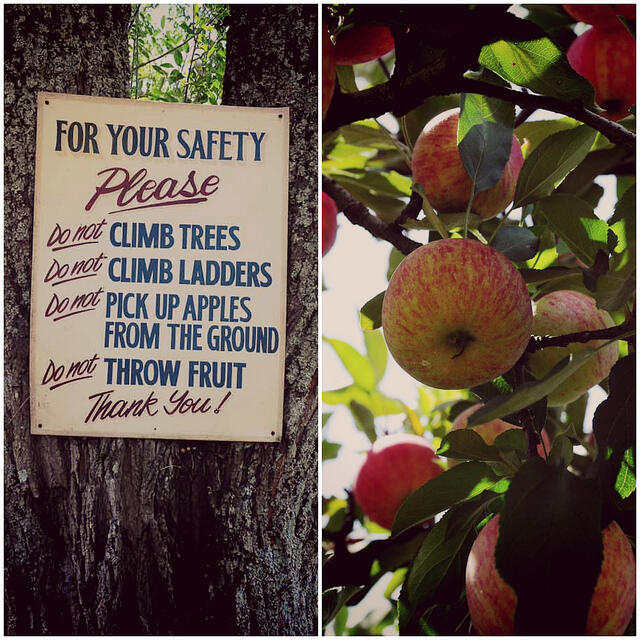 FOR YOUR SAFETY
Please
Do not CLIMB TREES
Do not CLIMB LADDERS
Do not PICK UP APPLES
FROM THE GROUND
Do not THROW FRUIT
Thank You!